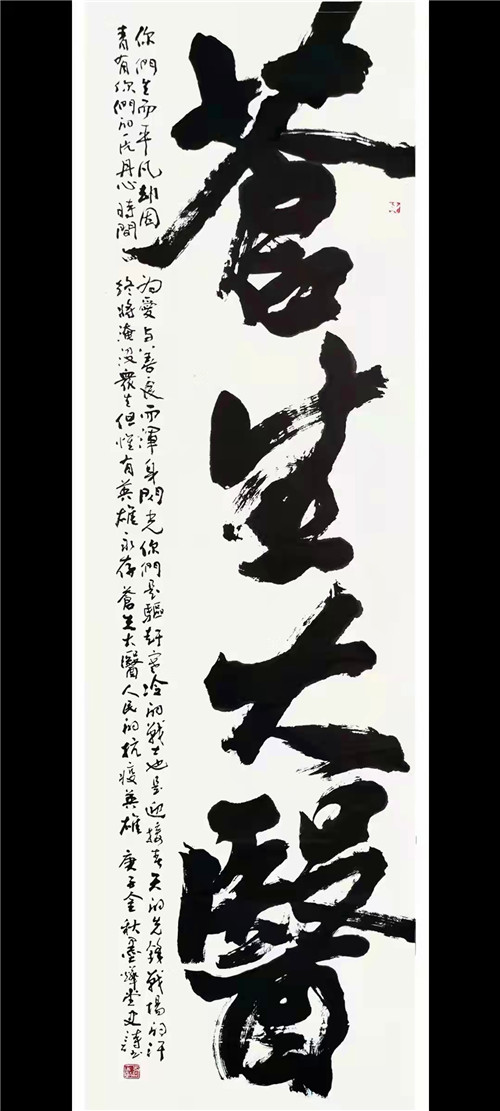 蒼生大醫
你們生而平凡卻因為愛与善良而渾身閃光你們是驅趕寒冷的戰士也是迎接春天的先鋒戰場的汗
青有你們的丹心時間終將淹沒眾生但惟有英雄永存蒼生大醫人民的抗疫英雄 庚子金秋墨堂史